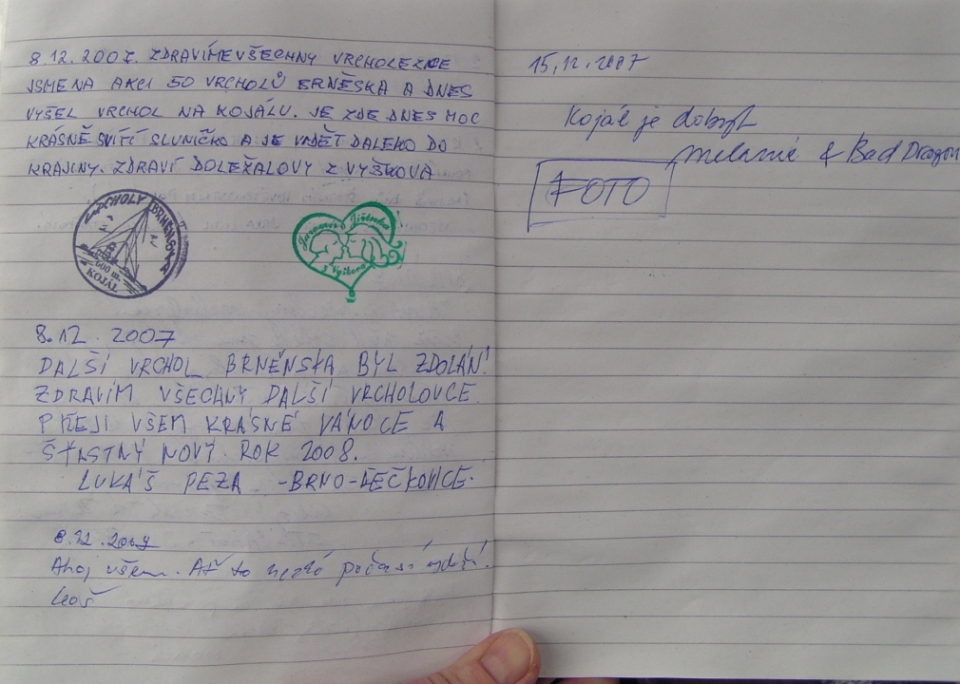 8.12.2007. ZDRAVÍME VŠECHNY VRCHOLEZCE
JSME NA AKCI 50 VRCHOLŮ BRNĚSKA A DNES
VYŠEL VRCHOL NA KOJÁLU. JE ZDE DNES MOC
KRÁSNĚ SVÍTÍ SLUNÍČKO A JE VIDĚT DALEKO DO
KRAJINY. ZDRAVÍ DOLEŽALOVY Z VYŠKOVA
VRCHOLY BRNĚNSKA
600 m.
KOJÁL
Jiřinka
z Vyškova
8.12.2007
DALŠÍ VRCHOL BRNĚNSKA BYL ZDOLÁN!
ZDRAVÍM VŠECHNY DALŠÍ VRCHOLOVCE.
PŘEJI VŠEM KRÁSNÉ VÁNOCE A
ŠŤASTNÝ NOVÝ ROK 2008.
LUKÁŠ PEZA -BRNO-ŘEČKOVICE-
8.12.2007
Ahoj všem. Ať to hezké počasí vydrží.
15.12.2007
Kojál je dobyt
Melanie & Bad Dragon
FOTO